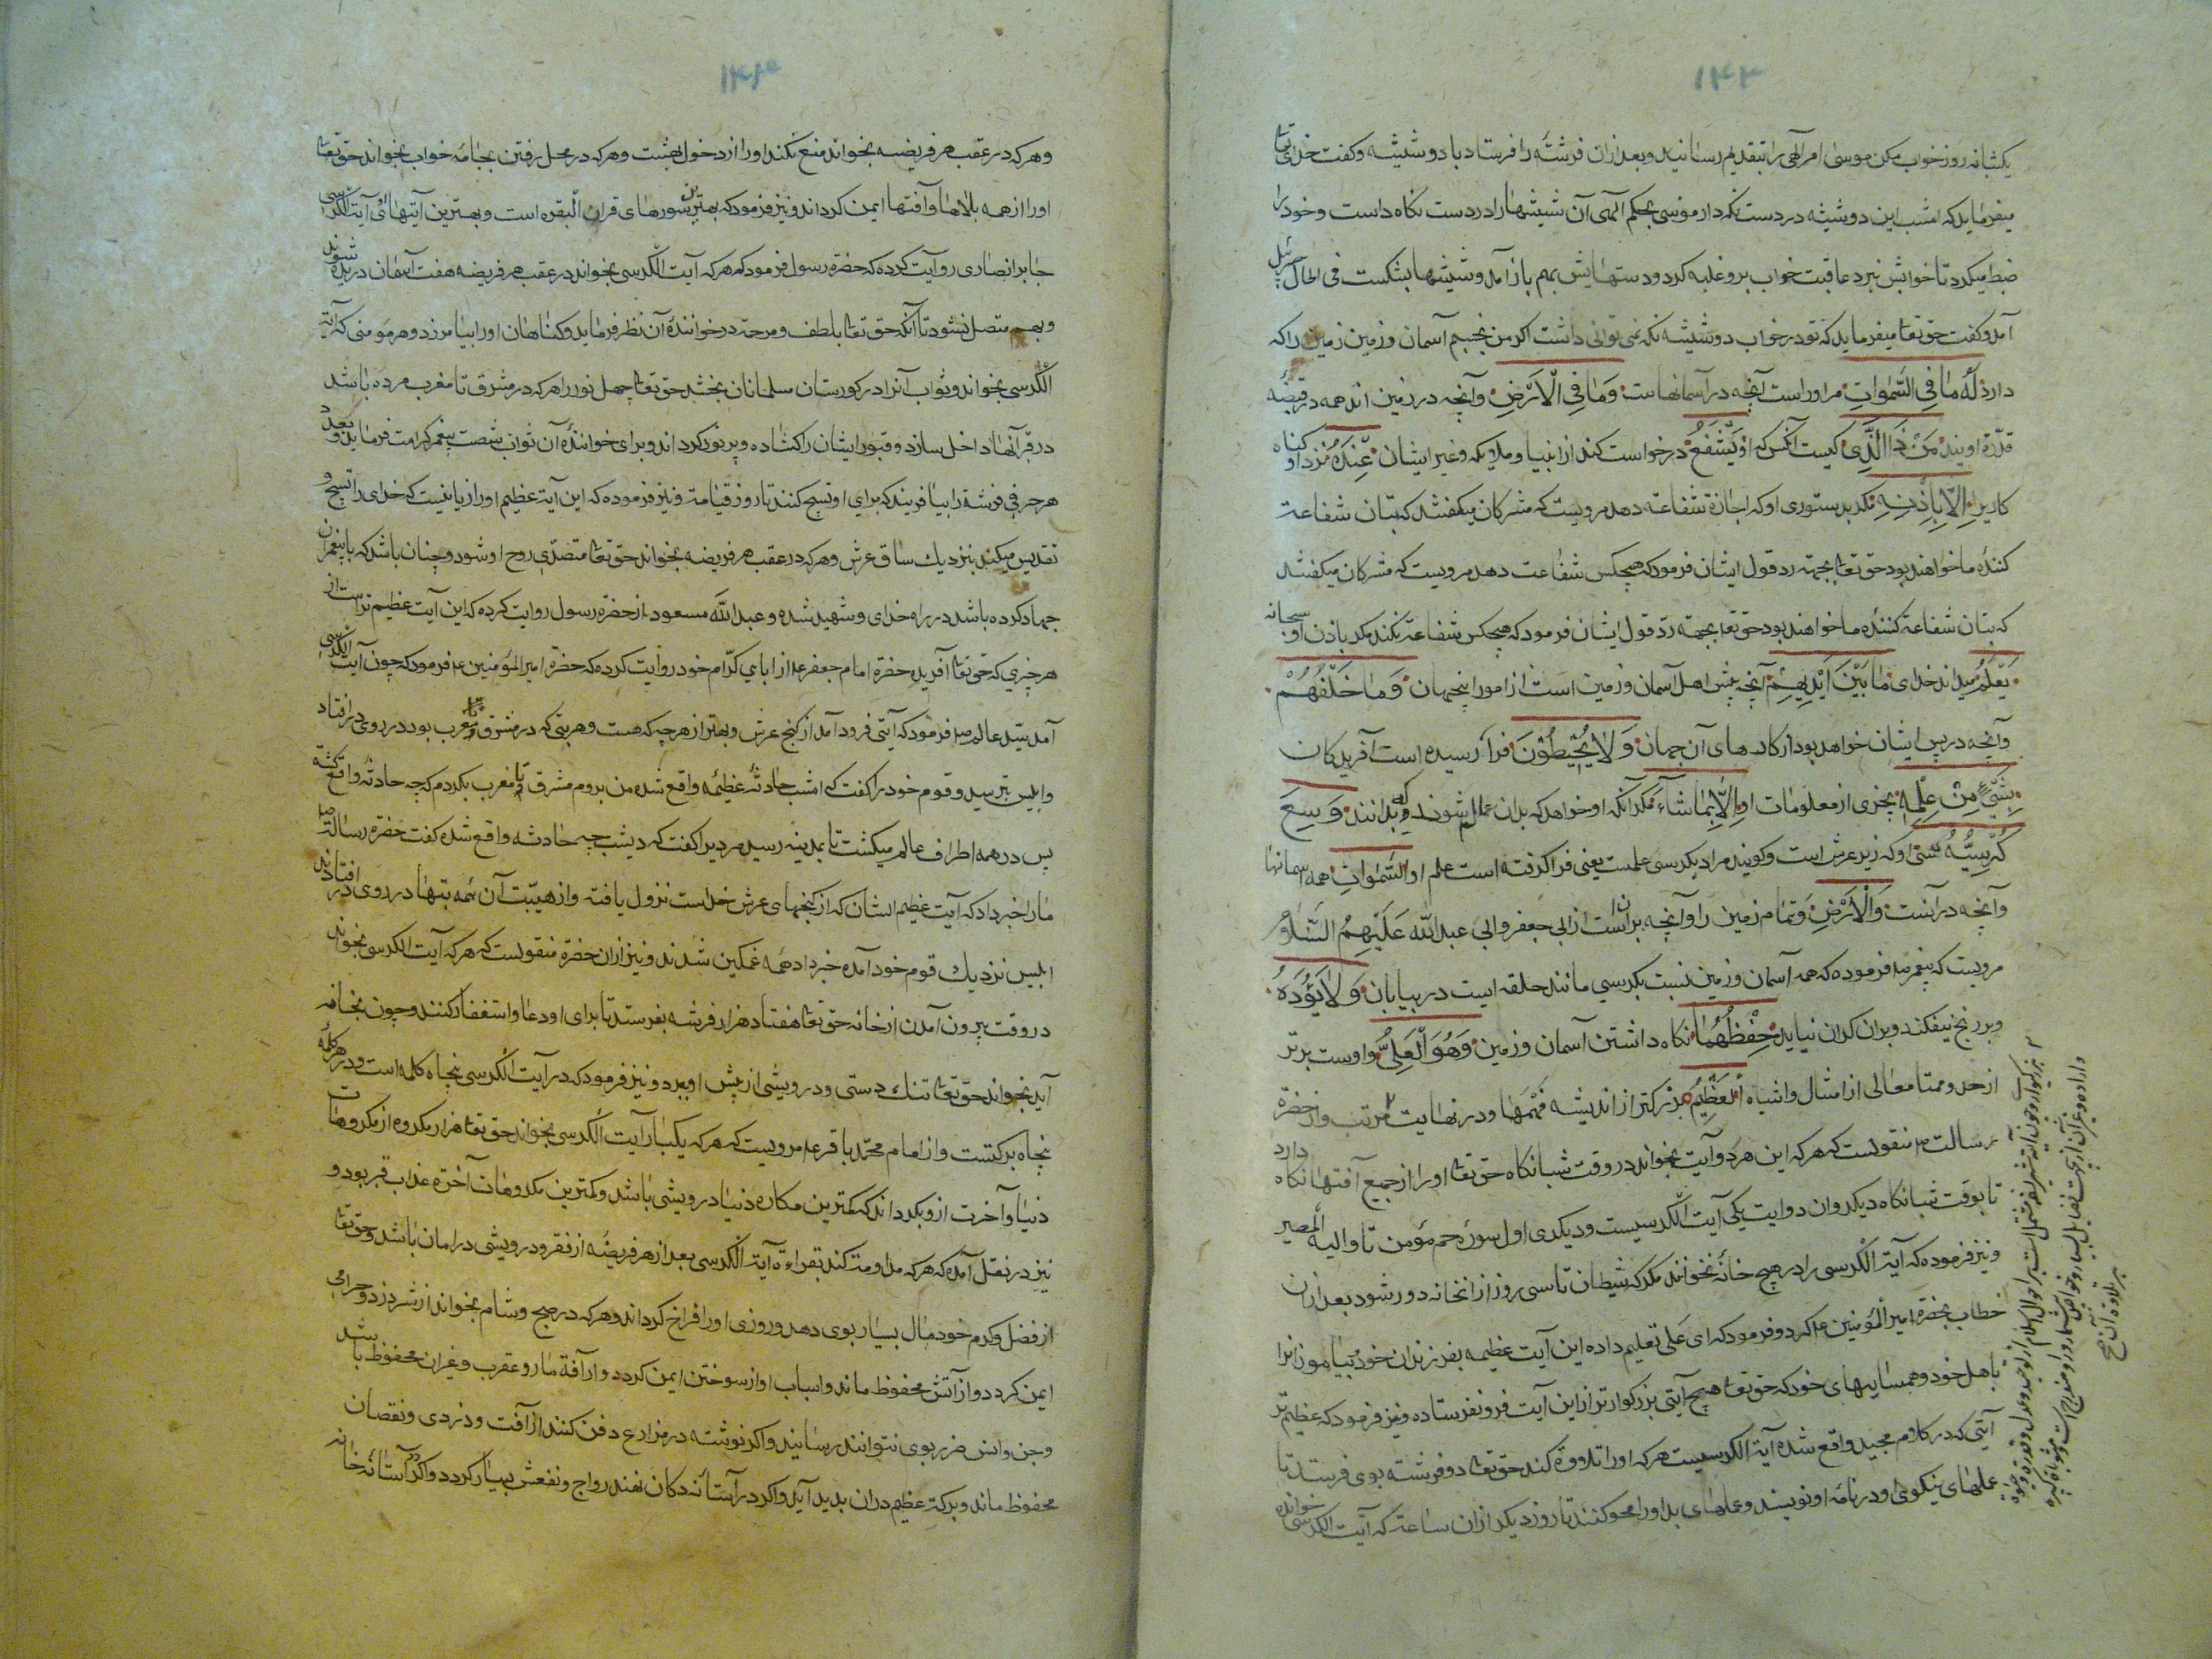 ۱۴۳
یکشبانه روز خواب مکن موسی امر الهی را بتقدیم رسانید و بعد ازان فرشته را فرستاد با دو شیشه و گفت خدای تعا
میفرماید که امشب این دو شیشه در دست نکه دار موسی بحکم الهی آن شیشها را در دست نکاه داشت و خود را
ضبط میکرد تا خوابش نبرد عاقبت خواب برو غلبه کرد و دستهایش بهم باز آمد و شیشها بشکست فی الحال
آمد و گفت حق تعا میفرماید که تو در خواب دو شیشه نکه نمی توانی داشت اکر من بخسبم آسمان و زمین را که
دارد لَهُ مَا فِی السَّمٰوَاتِ مر اوراست آنچه در آسمانهاست وَمَا فِی الْاَرْضِ و آنچه در زمین اند همه در قبضه
قدرة اویند مَنْ ذَا الَّذِی کیست انکس که او یَشْفَعُ درخواست کند از انبیا و ملایکه و غیر ایشان عِنْدَهُ نزد او
اِلَّا بِاِذْنِهِ مکر بدستوری او که اجازة شفاعة دهد مرویست که مشرکان میکفتند که بتان شفاعة
کننده ما خواهند بود حق تعا بجهة رد قول ایشان فرمود که هیچکس شفاعت دهد مرویست که مشرکان میکفتند
که بتان شفاعة کننده ما خواهند بود حق تعا بجهة رد قول ایشان فرمود که هیچکس شفاعة نکند مکر باذن او سبحانه
یَعْلَمُ میداند خدای مَا بَیْنَ اَیْدِیهِمْ آنچه پیش اهل آسمان و زمین است از امور اینجهان وَمَا خَلْفَهُمْ
و آنچه در پس ایشان خواهد بود از کارهای آن جهان وَلَا یُحِیطُونَ فرا نرسیده است آفریدکان
بِشَیْءٍ مِنْ عِلْمِهِ بچیزی از معلومات او اِلَّا بِمَا شَاءَ مکر آنکه او خواهد که بدان عالم شوند و بدانند وَسِعَ
کُرْسِیُّهُ کرسی او که زیر عرش است و کویند مراد بکرسی علمست یعنی فرا کرفته است علم او السَّمٰوَاتِ همه اسمانها
و آنچه در آنست وَالْاَرْضَ و تمام زمین را و آنچه بر آنست از ابی جعفر و ابی عبدالله عَلَیْهِمُ السَّلَامُ
مرویست که پیغمبر فرموده که همه آسمان و زمین نسبت بکرسی مانند حلقه ایست در بیابان وَلَا یَؤُدُهُ
و بر رنج نیفکند و بران کران نیاید حِفْظُهُمَا نکاه داشتن آسمان و زمین وَهُوَ الْعَلِیُّ و اوست برتر
از حد و همتا و متعالی از امثال و اشباه الْعَظِیمُ بزرکتر از اندیشه فهمها و در نهایت مرتب و از حضرة
رسالت منقولست که هر که این هر دو آیت بخواند در وقت شبانکاه حق تعا او را از جمیع آفتها نکاه دارد
تا بوقت شبانکاه دیکر و ان دو ایت یکی آیت الکرسیست و دیکری اول سوره حم مؤمن تا و الیه المصیر
و نیز فرموده که آیة الکرسی را در هیچ خانه نخوانند مکر که شیطان تا سی روز از انخانه دور شود بعد ازان
خطاب بحضرة امیر المؤمنین کرد و فرمود که ای علی تعلیم داده این آیت عظیمه بفرزندان خود بیاموز انرا
باهل خود و همسایهای خود که حق تعا هیچ آیتی بزرکوارتر از این آیت فرو نفرستاده و نیز فرمود که عظیم تر
آیتی که در کلام مجید واقع شده آیة الکرسیست هر که او را تلاوة کند حق تعا دو فرشته بوی فرستد تا
عملهای نیکوی او در نامه او نویسند و عملهای بد او را محو کنند تا روز دیکر ازان ساعة که آیت الکرسی خوانده
و هر که در عقب هر فریضه بخواند منع نکند او را از دخول بهشت و هر که در محل رفتن بجامه خواب بخواند حق تعا
او را از همه بلاها و آفتها ایمن کرداند و نیز فرمود که بهترین سورهای قران البقره است و بهترین آیتهای آیت الکرسی
جابر انصاری روایت کرده که حضرة رسول فرمود که هر که آیت الکرسی بخواند در عقب هر فریضه هفت آسمان دریده شوند
و بهم متصل نشود تا آنکه حق تعا بلطف و مرحمة در خواننده آن نظر فرماید و کناهان او را بیامرزد و هر مومنی که آیة
الکرسی بخواند و ثواب آنرا در کورستان مسلمانان بخشد حق تعا چهل نور را هر که در مشرق تا مغرب مرده باشد
در قبر آنها داخل سازد و قبور ایشان را کشاده و پر نور کرداند و برای خواننده آن ثواب شصت پیغمبر کرامت فرماید و بعدد
هر حرفی فرشته را بیافریند که برای او تسبیح کنند تا روز قیامة و نیز فرموده که این آیة عظیم او را زبانیست که خدای را تسبیح و
تقدیس میکند بنزدیك ساق عرش و هر که در عقب هر فریضه بخواند حق تعا متصدی روح او شود و چنان باشد که با پیغمبران
جهاد کرده باشد در راه خدای و شهید شده و عبد الله مسعود از حضرة رسول روایت کرده که این آیت عظیم تر است از
هر چیزی که حق تعا آفریده حضرة امام جعفر از ابای کرام خود روایت کرده که حضرة امیر المؤمنین فرمود که چون آیت الکرسی
آمد سید عالم فرمود که آیتی فرود آمد از کنج عرش و بهتر از هر چه که هست و هر بتی که در مشرق تا مغرب بود در روی در افتاد
و ابلیس بترسید و قوم خود را کفت که امشب حادثه عظیمه واقع شده من بروم مشرق تا مغرب بکردم که چه حادثه واقع کشته
پس در همه اطراف عالم میکشت تا بمدینه رسید مردیرا کفت که دیشب چه حادثه واقع شده کفت حضرة رسالت
ما را خبر داد که آیت عظیم الشان که از کنجهای عرش خداست نزول یافته و از هیبت آن همه بتها در روی در افتادند
ابلیس نزدیك قوم خود آمده خبر داد همه غمکین شدند و نیز ازان حضرة منقولست که هر که آیت الکرسی بخواند
در وقت بیرون آمدن از خانه حق تعا هفتاد هزار فرشه بفرستد تا برای او دعا و استغفار کنند و چون بخانه
آید بخواند حق تعا تنك دستی و درویشی از پیش او ببرد و نیز فرمود که در آیت الکرسی پنجاه کلمه است و در هر کلمه
پنجاه برکتست و از امام محمد باقر مرویست که هر که یکبار آیت الکرسی بخواند حق تعا هزار مکروه از مکروهات
دنیا و آخرت ازو بکرداند که کمترین مکاره دنیا درویشی باشد و کمترین مکروهات آخرة عذاب قبر بود و
نیز در نقل آمده که هر که مداومت کند بقراءة آیة الکرسی بعد از هر فریضه از فقر و درویشی در امان باشد و حق تعا
از فضل و کرم خود مال بسیار بوی دهد و روزی او را فراخ کرداند و هر که در صبح و شام بخواند از شر دزد و حرامی
ایمن کردد و از آتش محفوظ ماند و اسباب او از سوختن ایمن کردد و از آفة مار و عقرب و غیران محفوظ باشد
و جن و انس ضرر بوی نتوانند رسانید و اکر نوشته در مزارع دفن کنند از آفت و دزدی و نقصان
محفوظ ماند و برکة عظیم دران بدید آید و اکر در آستانه دکان نهند رواج و نفعش بسیار کردد و اکر در آستانه خانه